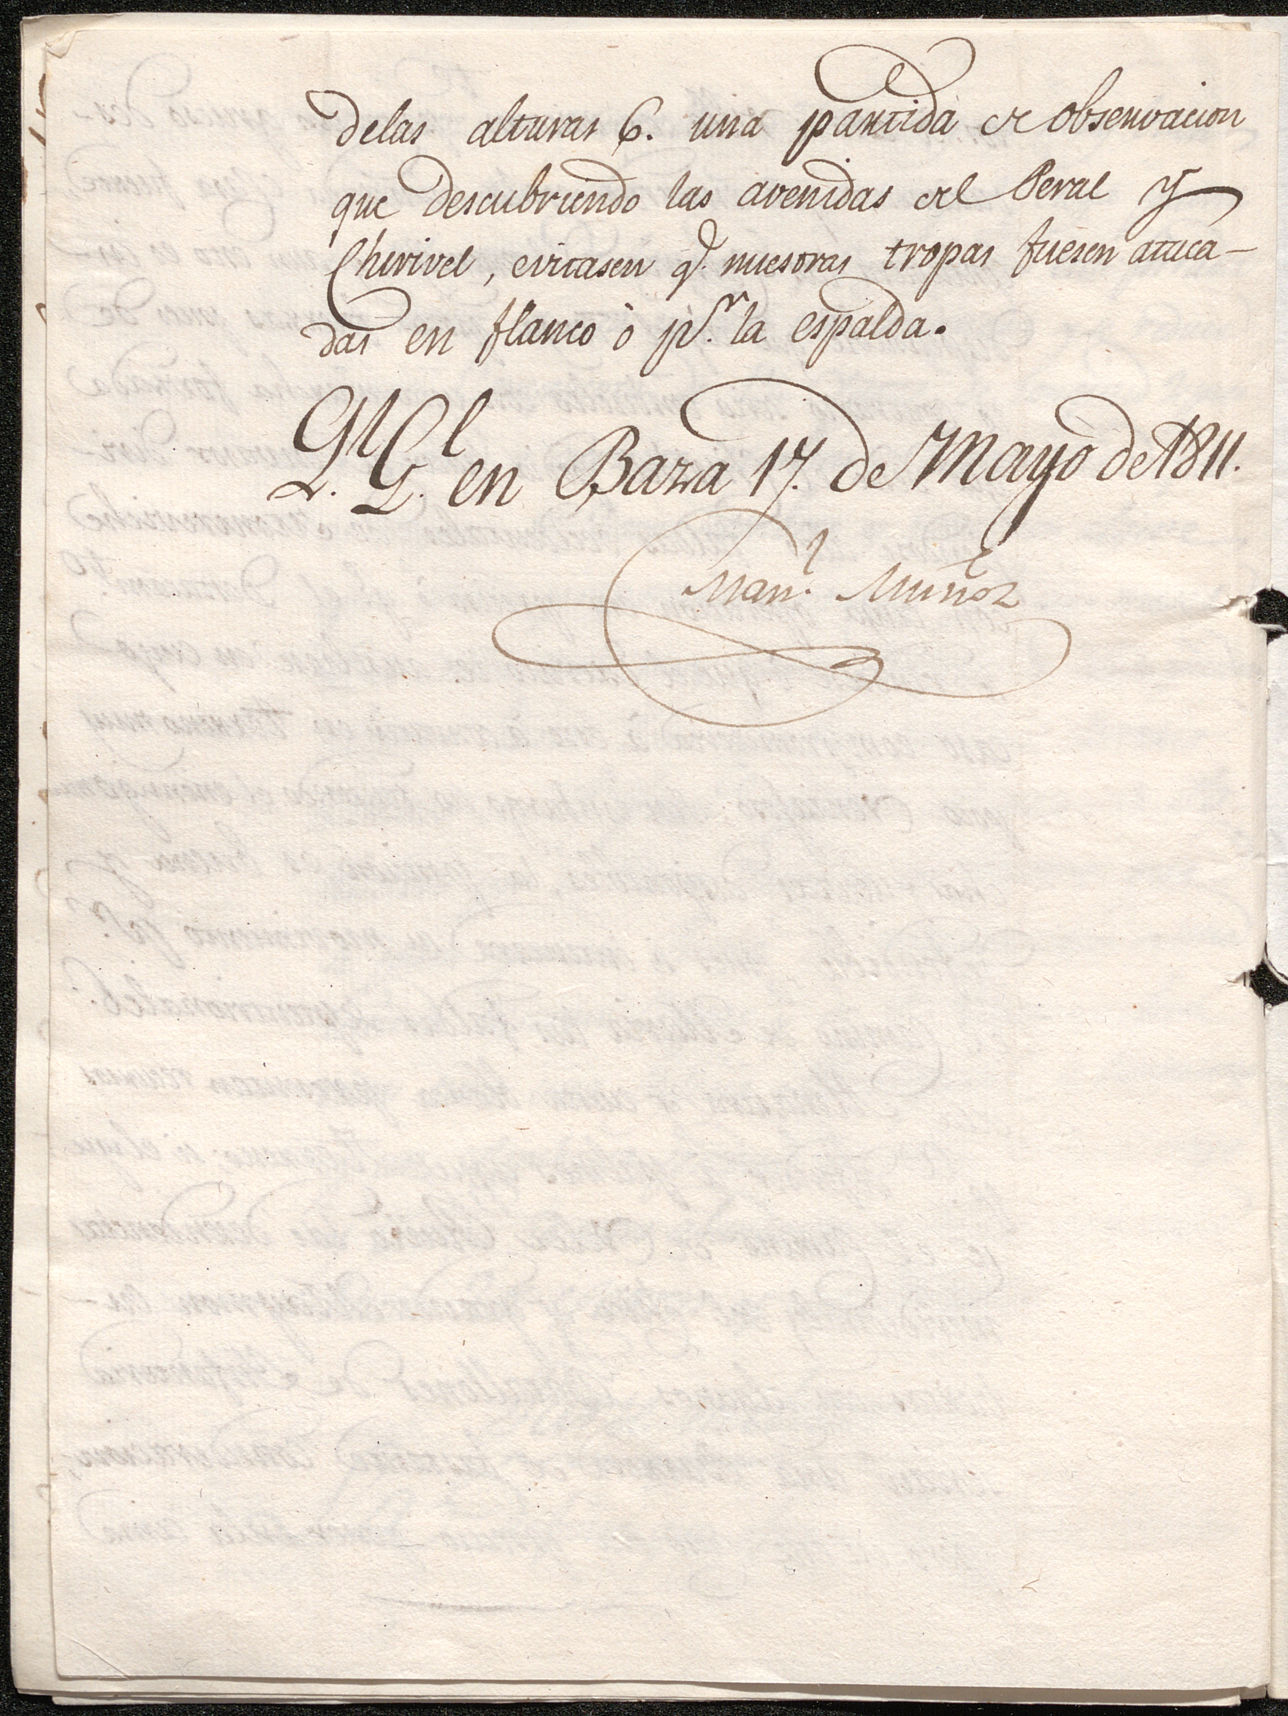 delas alturas 6. una partida de observacion
que descubriendo las avenidas del Peral y
Chirivel, evitasen q.e nuestras tropas fuesen ataca-
das en flanco ò p.r la espalda.
Q.l G.l en Baza 17. de Mayo de 1811.
Man.l Muñoz